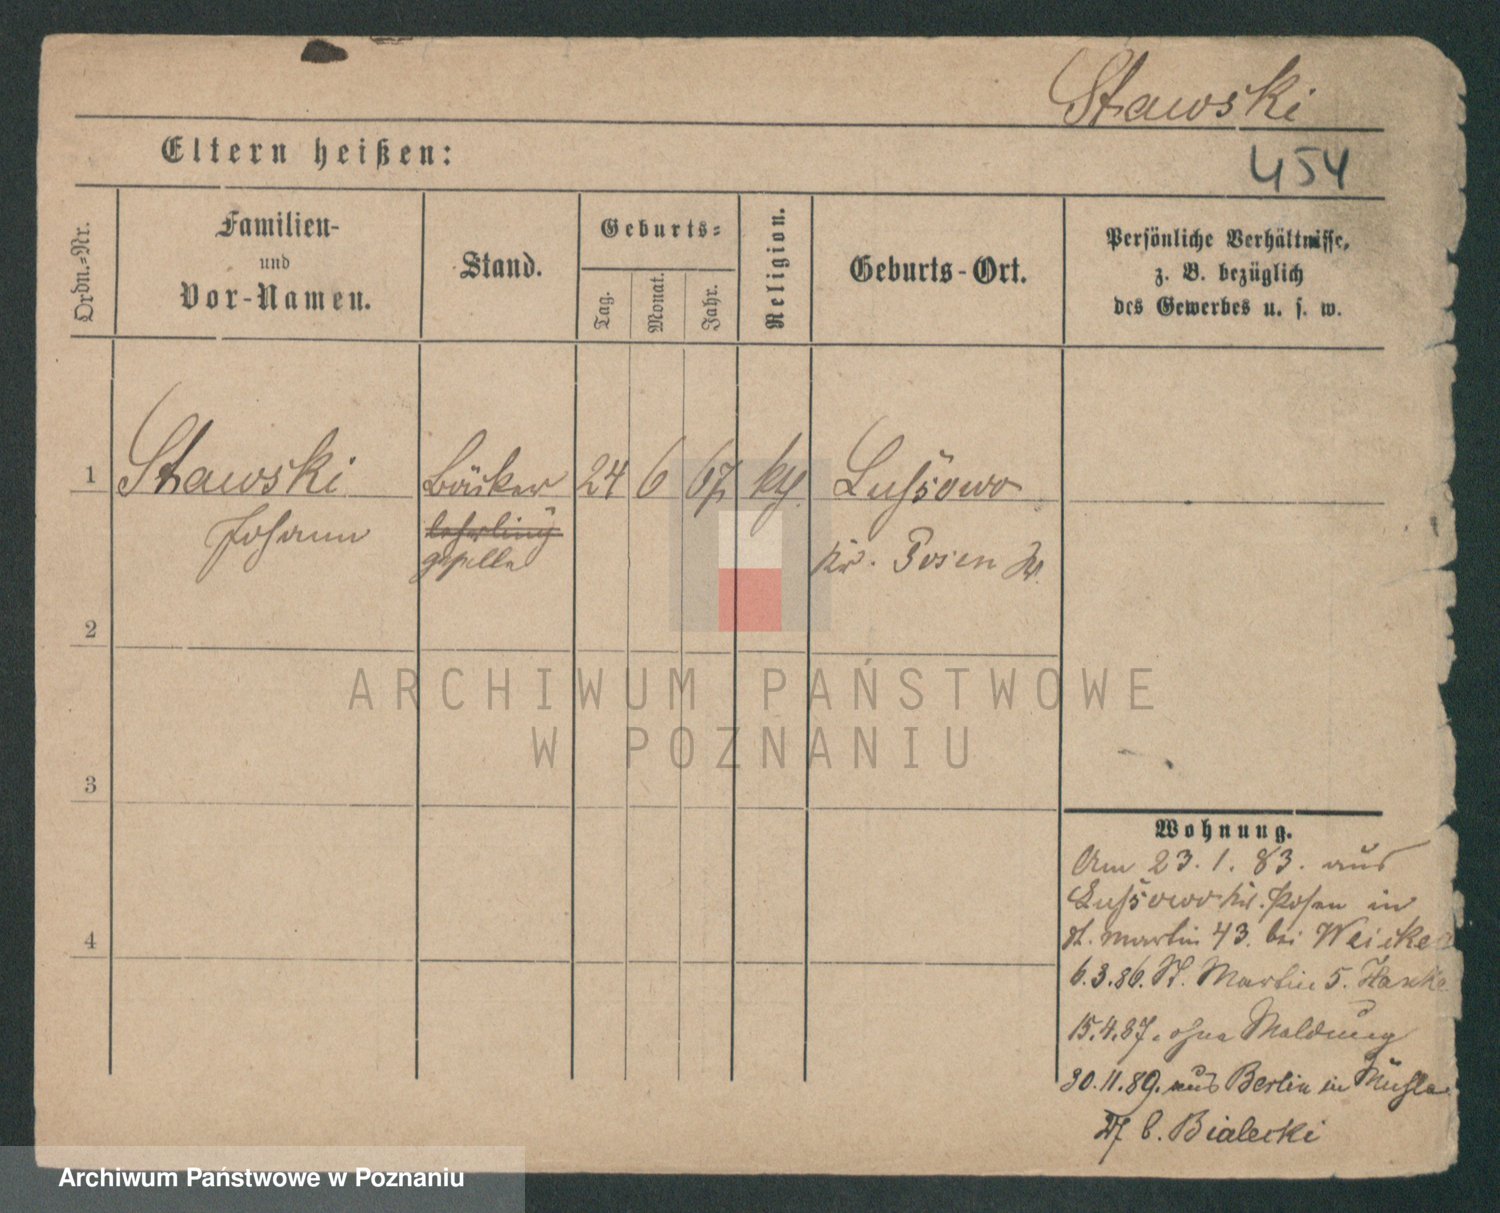 Stawski
Eltern heißen:
454
Ordn.-Nr.
Familien-
und
Vor-Namen.
Stand.
Geburts-
Tag.
Monat.
Jahr.
Religion.
Geburts-Ort.
Persönliche Verhältnisse,
z. B. bezüglich
des Gewerbes u. s. w.
1 Stawski Bäcker 24 6 67 kth. Lussowo
Johann lehrling
geselle Kr. Posen W.
2
3
4
Wohnung.
Am 23.1.83. aus
Lussowo Kr. Posen in
St. Martin 43. bei
6.3.86. St. Martin 5.
15.4.87. ohne Meldung
30.11.89. aus Berlin in
b. Bialecki
ARCHIWUM PAŃSTWOWE
W POZNANIU
Archiwum Państwowe w Poznaniu